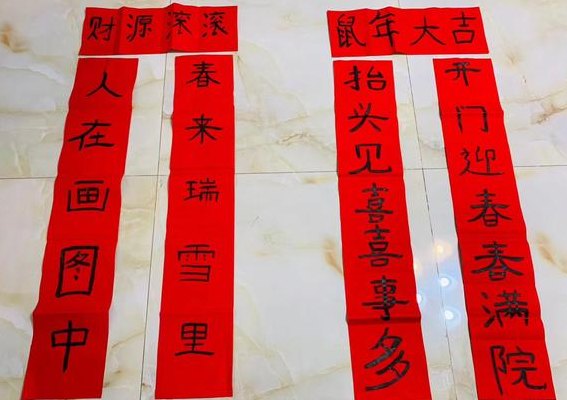 财源滚滚
人在画图中
春来瑞雪里
鼠年大吉
抬头见喜喜事多
开门迎春春满院